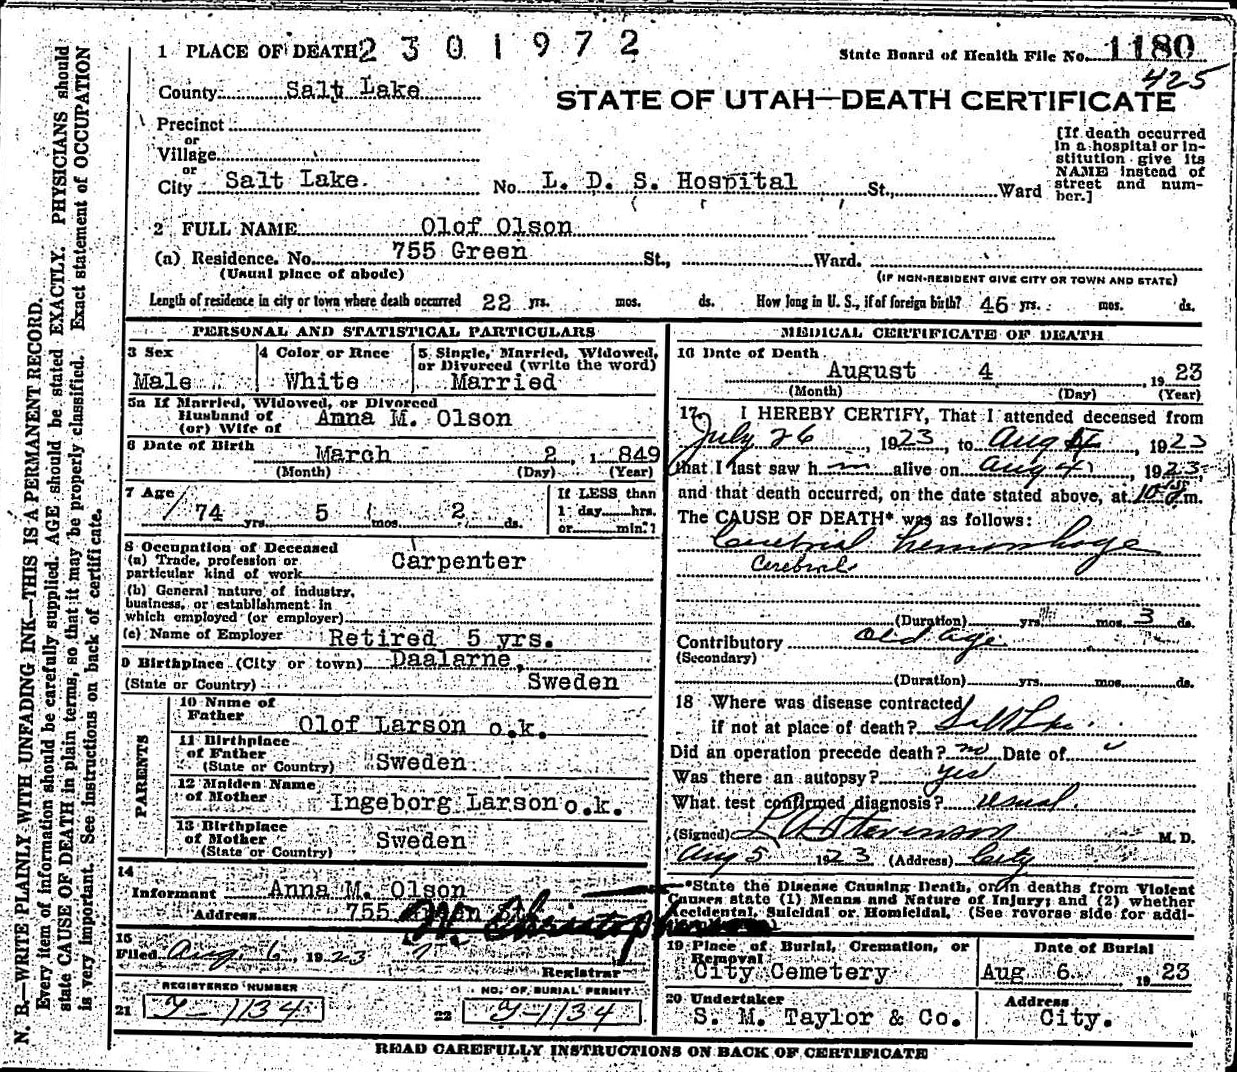 1 PLACE OF DEATH 2 3 0 1 9 7 2
State Board of Health File No. 1180
425
County Salt Lake
STATE OF UTAH—DEATH CERTIFICATE
Precinct
or
Village
or
City Salt Lake. No. L. D. S. Hospital St., Ward
[If death occurred
in a hospital or in-
stitution give its
NAME instead of
street and num-
ber.]
2 FULL NAME Olof Olson
(a) Residence. No. 755 Green St., Ward.
(Usual place of abode) (IF NON-RESIDENT GIVE CITY OR TOWN AND STATE)
Length of residence in city or town where death occurred 22 yrs. mos. ds. How long in U. S., if of foreign birth? 46 yrs. mos. ds.
PERSONAL AND STATISTICAL PARTICULARS
3 Sex
Male
4 Color or Race
White
5 Single, Married, Widowed,
or Divorced (write the word)
Married
5a If Married, Widowed, or Divorced
Husband of
(or) Wife of Anna M. Olson
6 Date of Birth March 2, 1 849
(Month) (Day) (Year)
7 Age
74 yrs. 5 mos. 2 ds.
If LESS than
1 day hrs.
or min.
8 Occupation of Deceased
(a) Trade, profession or
particular kind of work Carpenter
(b) General nature of industry,
business, or establishment in
which employed (or employer)
(c) Name of Employer Retired 5 yrs.
9 Birthplace (City or town) Daalarne,
(State or Country) Sweden
PARENTS
10 Name of
Father Olof Larson o.k.
11 Birthplace
of Father
(State or Country) Sweden
12 Maiden Name
of Mother Ingeborg Larson o.k.
13 Birthplace
of Mother
(State or Country) Sweden
14
Informant Anna M. Olson
Address 755 Green St.
W. Christopherson
15
Filed Aug. 6, 1923
Registrar
REGISTERED NUMBER
21 J-1134
NO. OF BURIAL PERMIT
22 J-1134
MEDICAL CERTIFICATE OF DEATH
16 Date of Death
August 4, 1923
(Month) (Day) (Year)
17 I HEREBY CERTIFY, That I attended deceased from
July 26, 1923, to Aug 4, 1923
that I last saw h m alive on Aug 4, 1923,
and that death occurred, on the date stated above, at m.
The CAUSE OF DEATH* was as follows:
Cerebral hemorrhage
Cerebral
(Duration) yrs. mos. 3 ds.
Contributory old age
(Secondary)
(Duration) yrs. mos. ds.
18 Where was disease contracted
if not at place of death? Salt Lake
Did an operation precede death? no Date of
Was there an autopsy? yes
What test confirmed diagnosis? usual.
(Signed) Stevenson M. D.
Aug 5, 1923 (Address) City
*State the Disease Causing Death, or in deaths from Violent
Causes state (1) Means and Nature of Injury; and (2) whether
Accidental, Suicidal or Homicidal. (See reverse side for addi-
19 Place of Burial, Cremation, or
Removal
City Cemetery
Date of Burial
Aug 6 1923
20 Undertaker
S. M. Taylor & Co.
Address
City.
READ CAREFULLY INSTRUCTIONS ON BACK OF CERTIFICATE
N. B.—WRITE PLAINLY WITH UNFADING INK—THIS IS A PERMANENT RECORD.
Every item of information should be carefully supplied. AGE should be stated EXACTLY. PHYSICIANS should
state CAUSE OF DEATH in plain terms, so that it may be properly classified. Exact statement of OCCUPATION
is very important. See instructions on back of certificate.